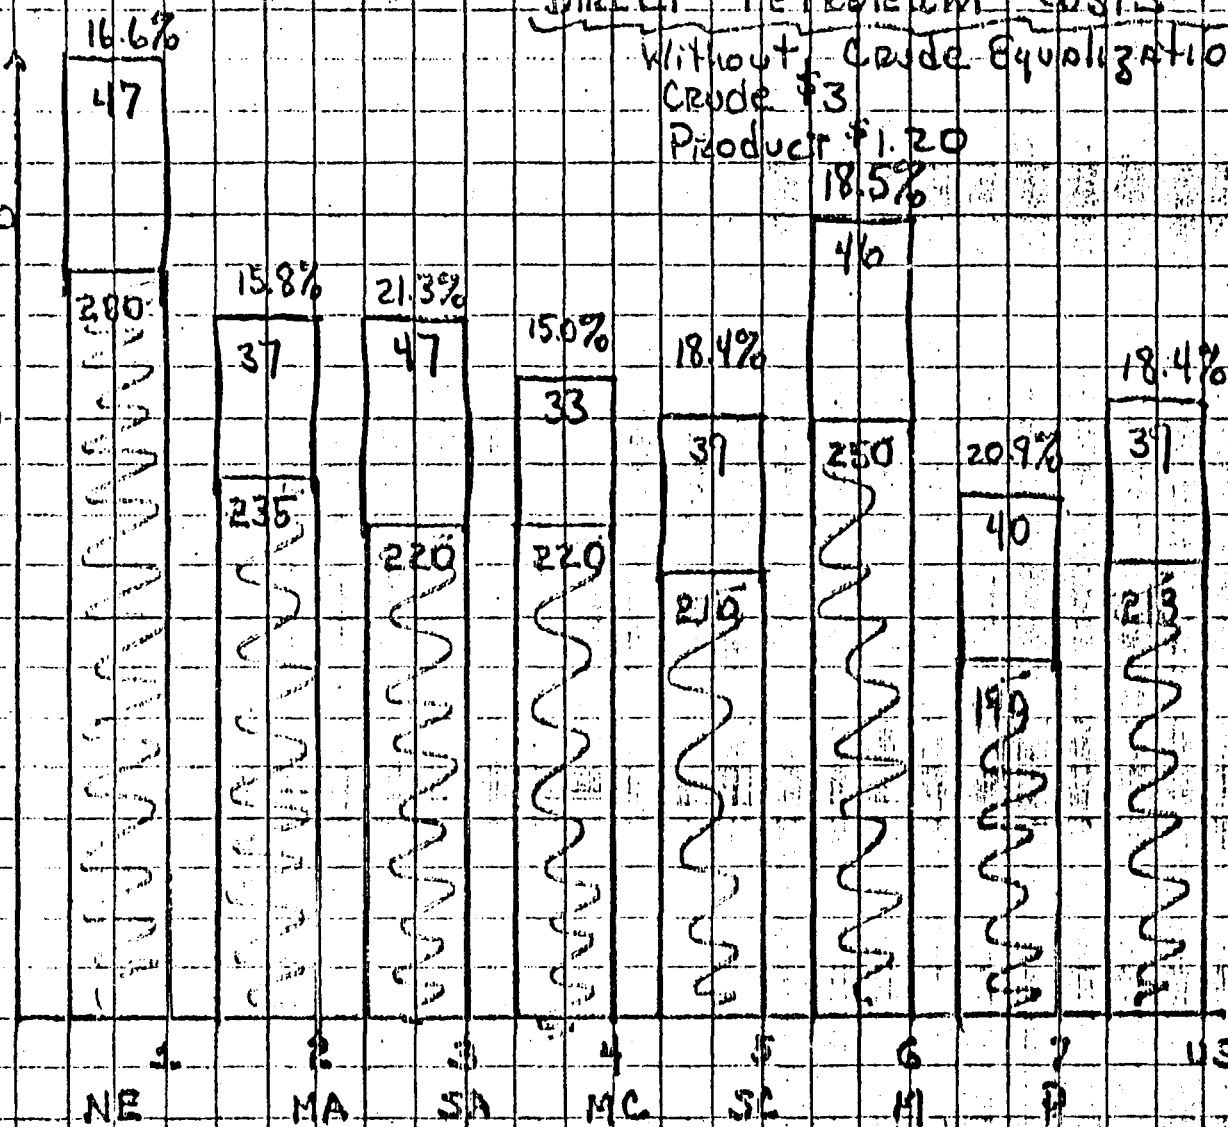 DIRECT PETROLEUM COSTS
Without Crude Equalizatio
Crude $3
Product $1.20
16.6%
47
280
15.8%
37
235
21.3%
47
220
15.0%
33
220
18.4%
37
210
18.5%
46
250
20.9%
40
190
18.4%
37
213
1 2 3 4 5 6 7 US
NE MA SA MC SC M P